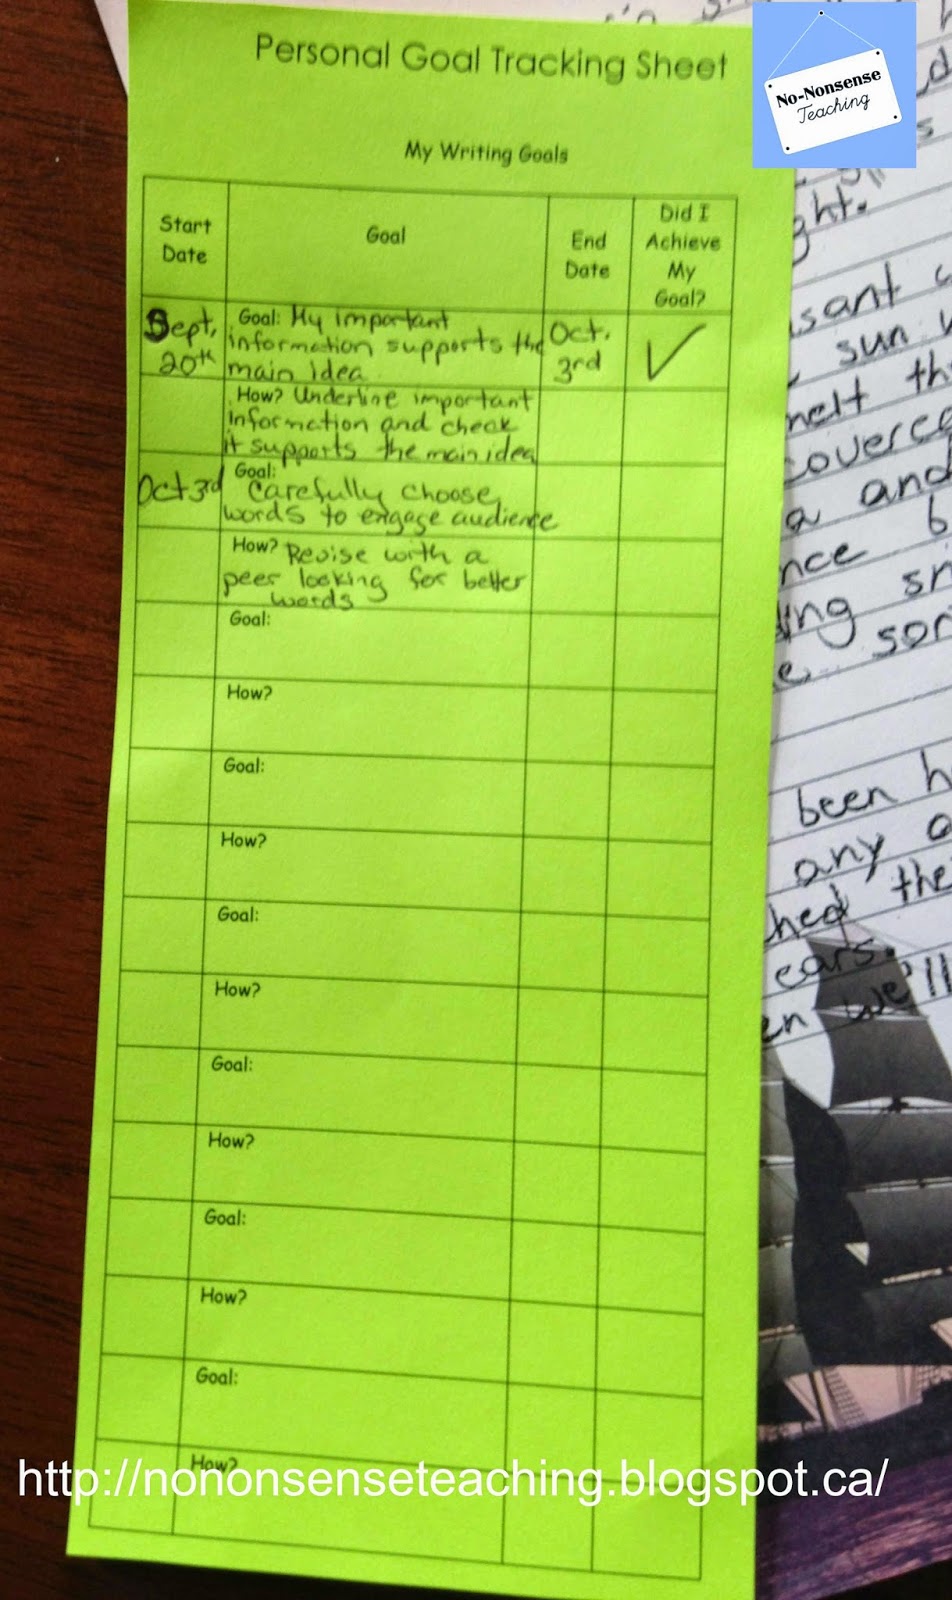 Personal Goal Tracking Sheet
No-Nonsense
Teaching
My Writing Goals
Start
Date
Goal
End
Date
Did I
Achieve
My
Goal?
Sept.
20th
Goal: My important
information supports the
main idea
Oct.
3rd
✓
How? Underline important
information and check
it supports the main idea
Oct 3rd
Goal:
Carefully choose
words to engage audience
How? Revise with a
peer looking for better
words
Goal:
How?
Goal:
How?
Goal:
How?
Goal:
How?
Goal:
How?
Goal:
How?
http://nononsenseteaching.blogspot.ca/
ght.
sun
melt
covered
a and
ance
sn
been h
any
the
ears.
we'll